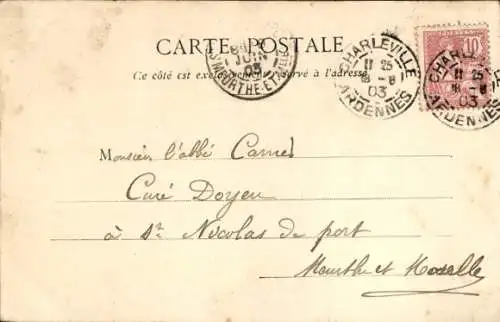 CARTE POSTALE
Ce côté est exclusivement réservé à l'adresse
JUIN
03
MEURTHE-ET-
CHARLEVILLE
11 25
8 -6
03
ARDENNES
POSTES
10
CHARLEVILLE
11 25
8 -6
03
ARDENNES
Monsieur l'abbé
Curé Doyen
à St Nicolas de port
Meurthe et Moselle